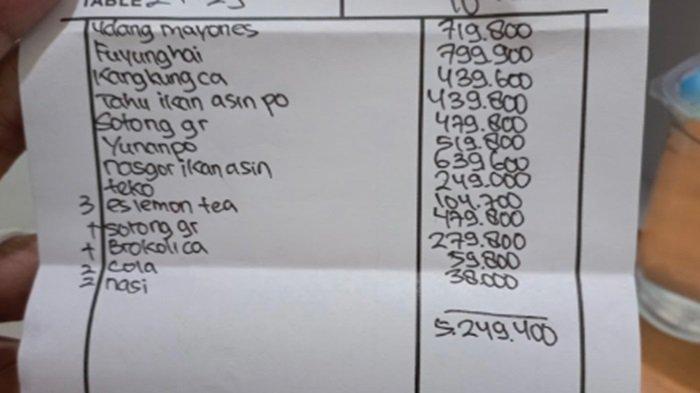 TABLE
udang mayones 719.800
Fuyunghai 799.900
Kangkung ca 439.600
Tahu ikan asin po 439.800
Sotong gr 479.800
Yunanpo 519.800
nasgor ikan asin 639.600
teko 249.000
3 es lemon tea 104.700
+ sotong gr 479.800
+ Brokoli ca 279.800
2 cola 59.800
2 nasi 38.000
5.249.400